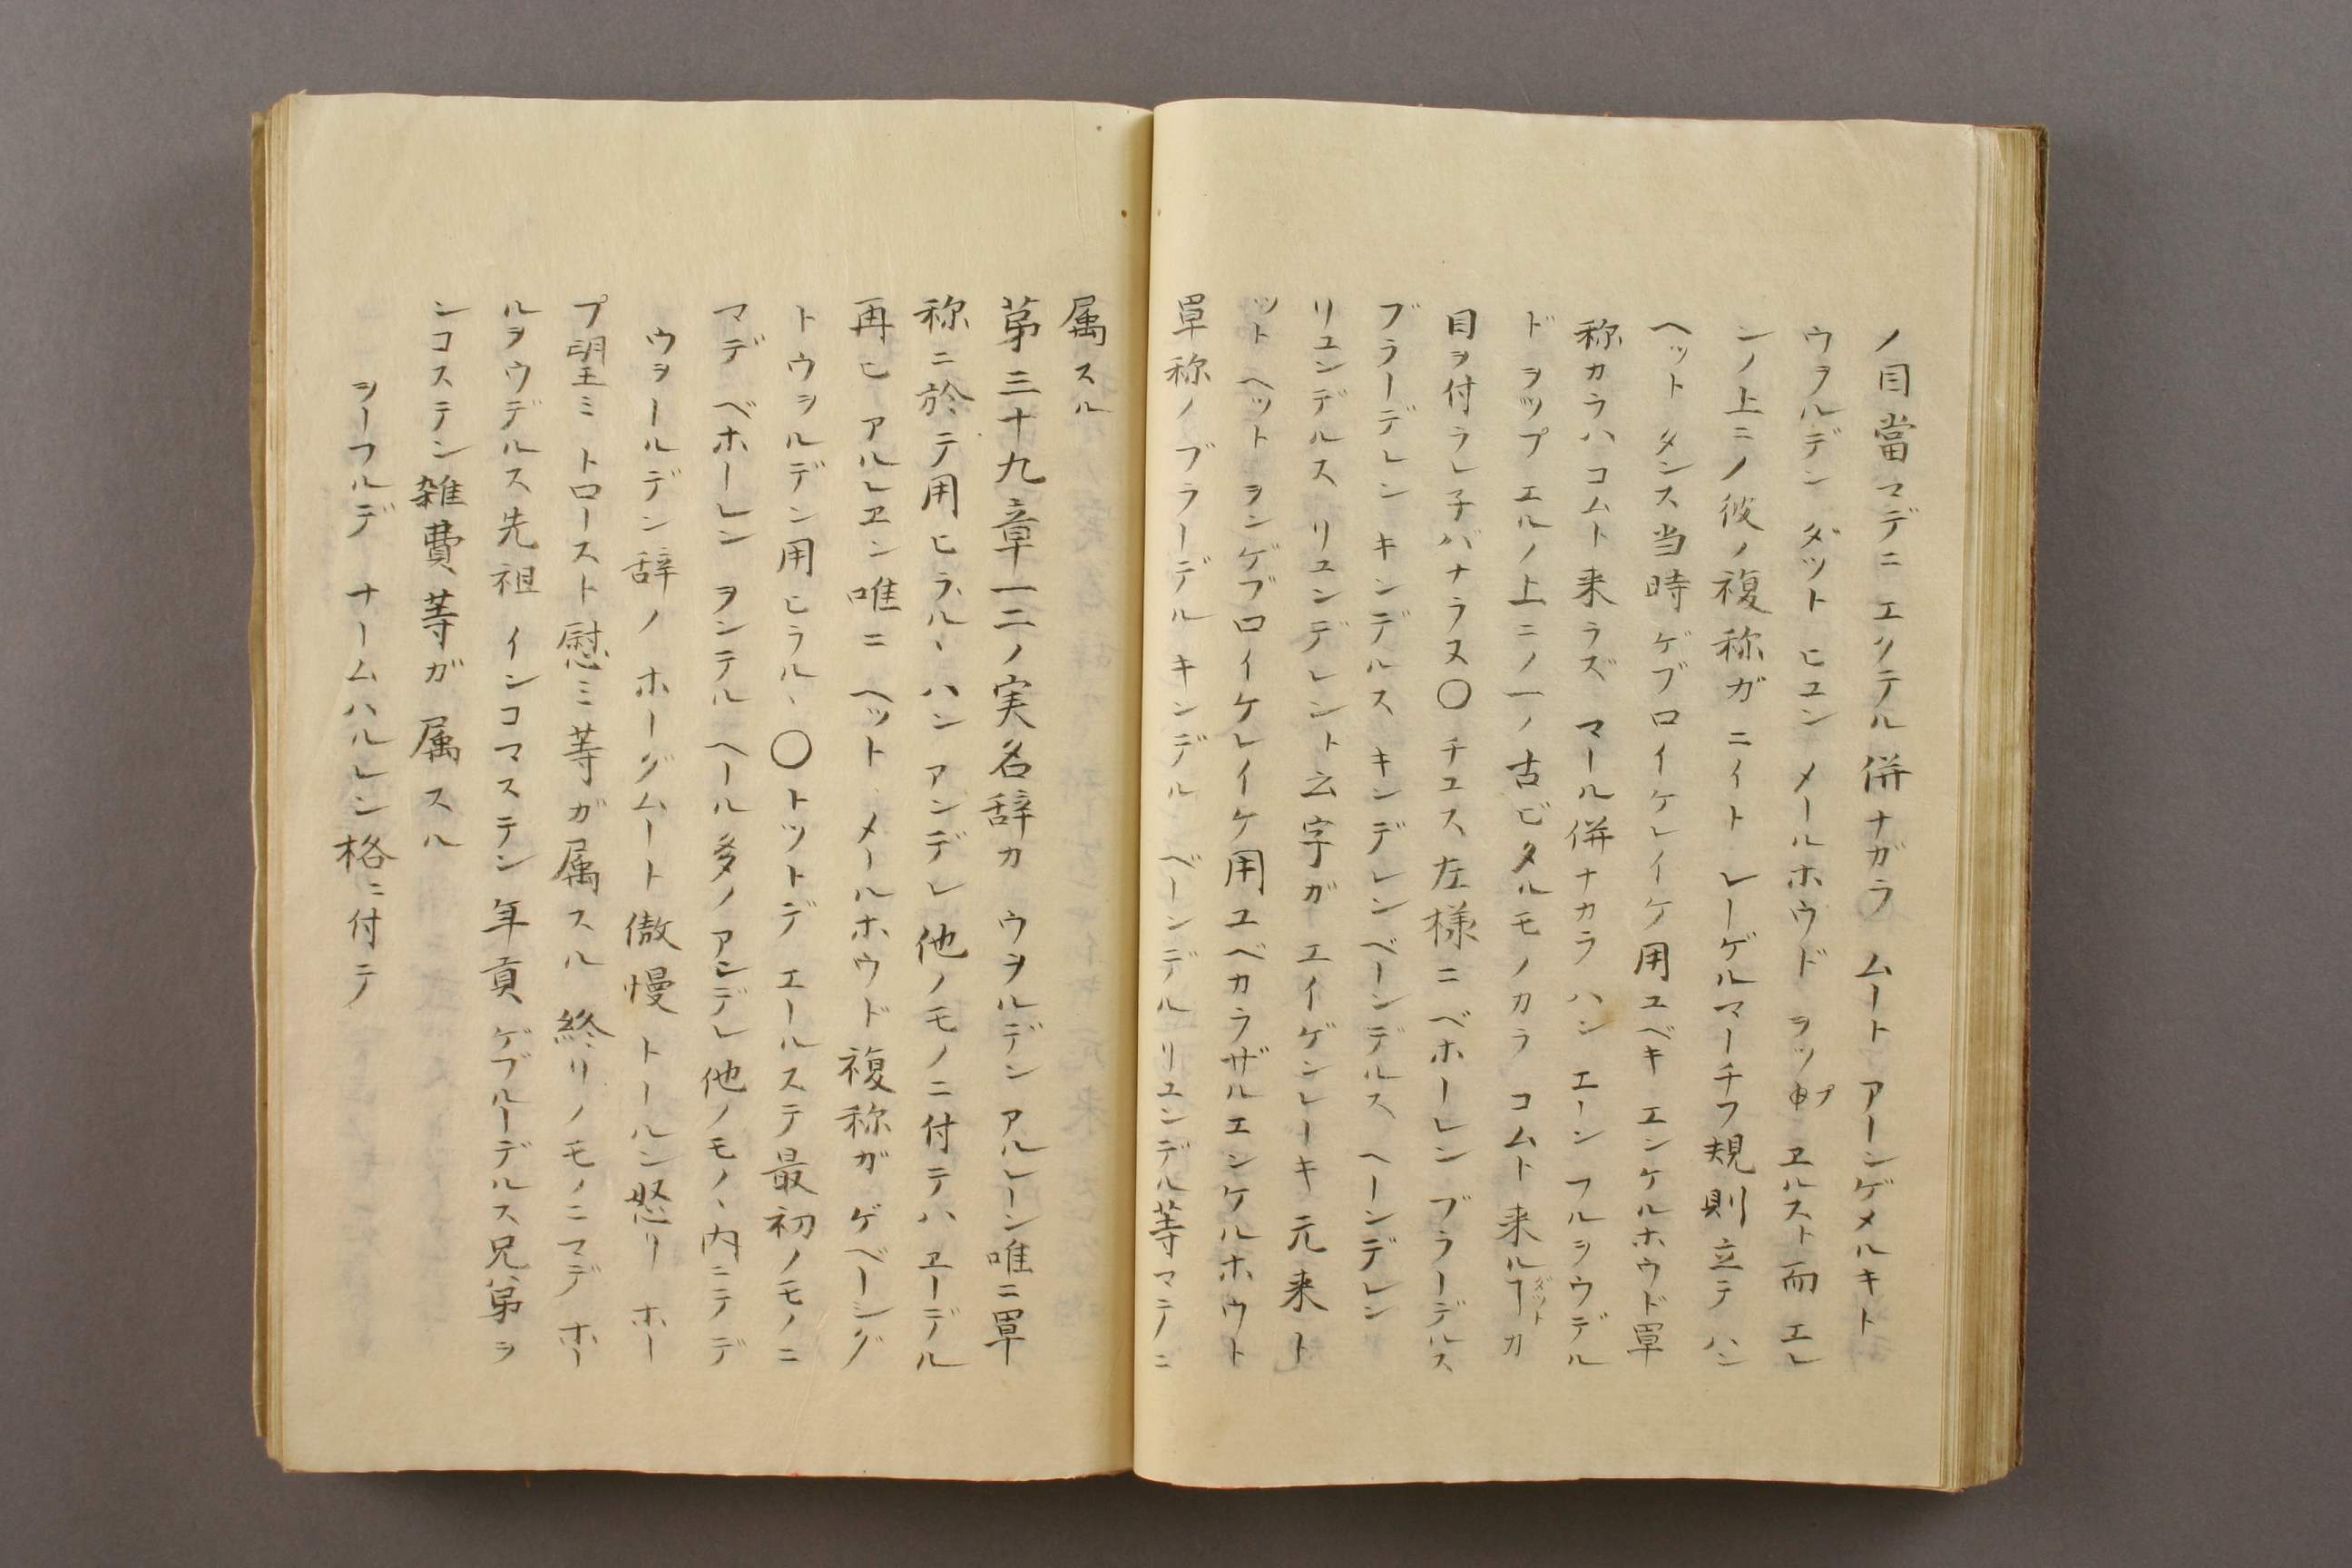 ノ目當マデニ エキテル併ナガラ ムート アーンゲメルキト
ウヲルデン ダット ヒユン メールホウド ヲップ 申 ヱルスト而 エレ
ンノ上ニノ彼ノ複称ガ ニイト レーゲルマーチフ規則立テ ハン
ヘット タンス当時 ゲブロイケレイケ用ユベキ エンケルホウド單
称カラハ コムト来ラズ マール併ナカラ ハン エーン フルヲウデル
ドヲップ エルノ上ニノ一ノ古ビタルモノカラ コムト来ルヿカ
目ヲ付ラレ子バナラヌ〇チユス左様ニ ベホーレン ブラーデルス
ブラーデレン キンデルス キンデレン ベーンデルス ベーンデレン
リユンデルス リユンデレント云字ガ エイゲンレーキ元来ト
ット ヘット ヲンゲブロイケレイケ用ユベカラザルエンケルホウト
單称ノブラーデル キンデル ベーンデル リユンデル等マテノニ
属スル
第三十九章一二ノ実名辞カ ウヲルデン アルレーン唯ニ單
称ニ於テ用ヒラルヽ ハン アンデレ他ノモノニ付テハ ヱーデル
再ヒ アルレヱン唯ニ ヘット メールホウド複称ガ ゲベーシグ
ト ウヲルデン用ヒラルヽ 〇トットデ エールステ最初ノモノニ
マデ ベホーレン ヲンテル ヘール多ノアンデレ他ノモノヽ内ニテデ
ウヲールデン辞ノ ホーグムート傲慢 トールン怒リ ホー
プ望ミ トロースト慰ミ等ガ属スル 終リノモノニマデ ホー
ルヲウデルス先祖 インコマステン 年貢 ゲブルーデルス兄弟 ヲ
ンコステン雑費等ガ 属スル
ヲーフルデ ナームハルレン格ニ付テ